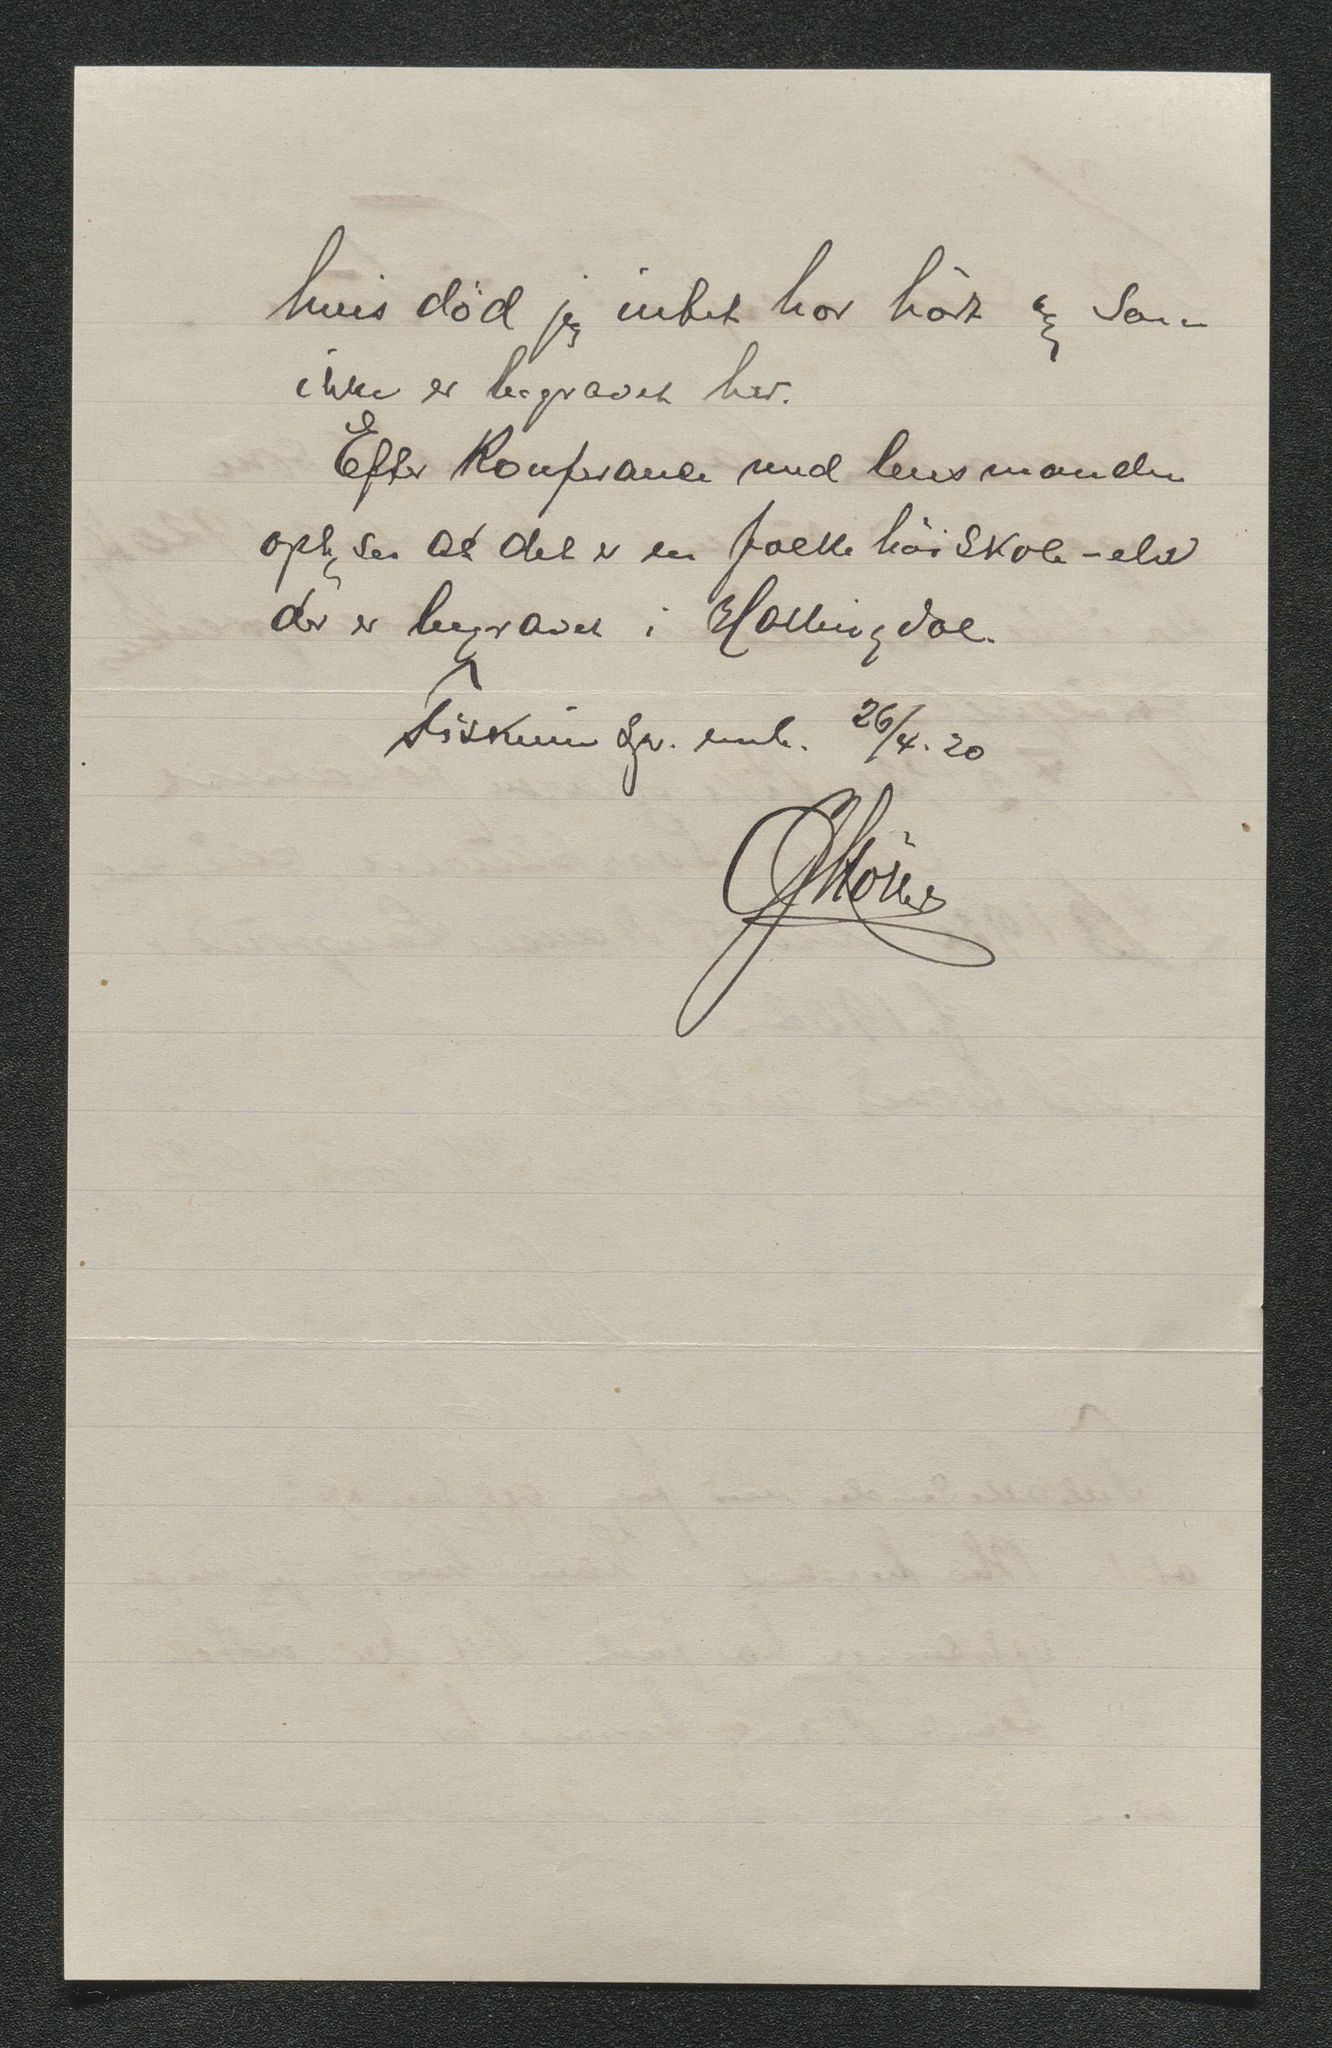 hvis död jeg intet har hört og som
ikke er begravet her.
Efter Konferance med lensmanden
oplyses at det er en folkehöiskole-elev
der er begravet i Hallingdal.
Fiskum Spr. emb. 26/4.20